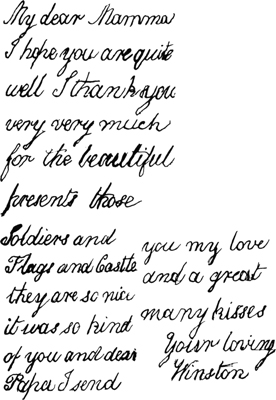 My dear Mamma
I hope you are quite
well I thank you
very very much
for the beautiful
presents those
Soldiers and
Flags and Castle
they are so nice
it was so kind
of you and dear
Papa I send
you my love
and a great
many kisses
Your loving
Winston